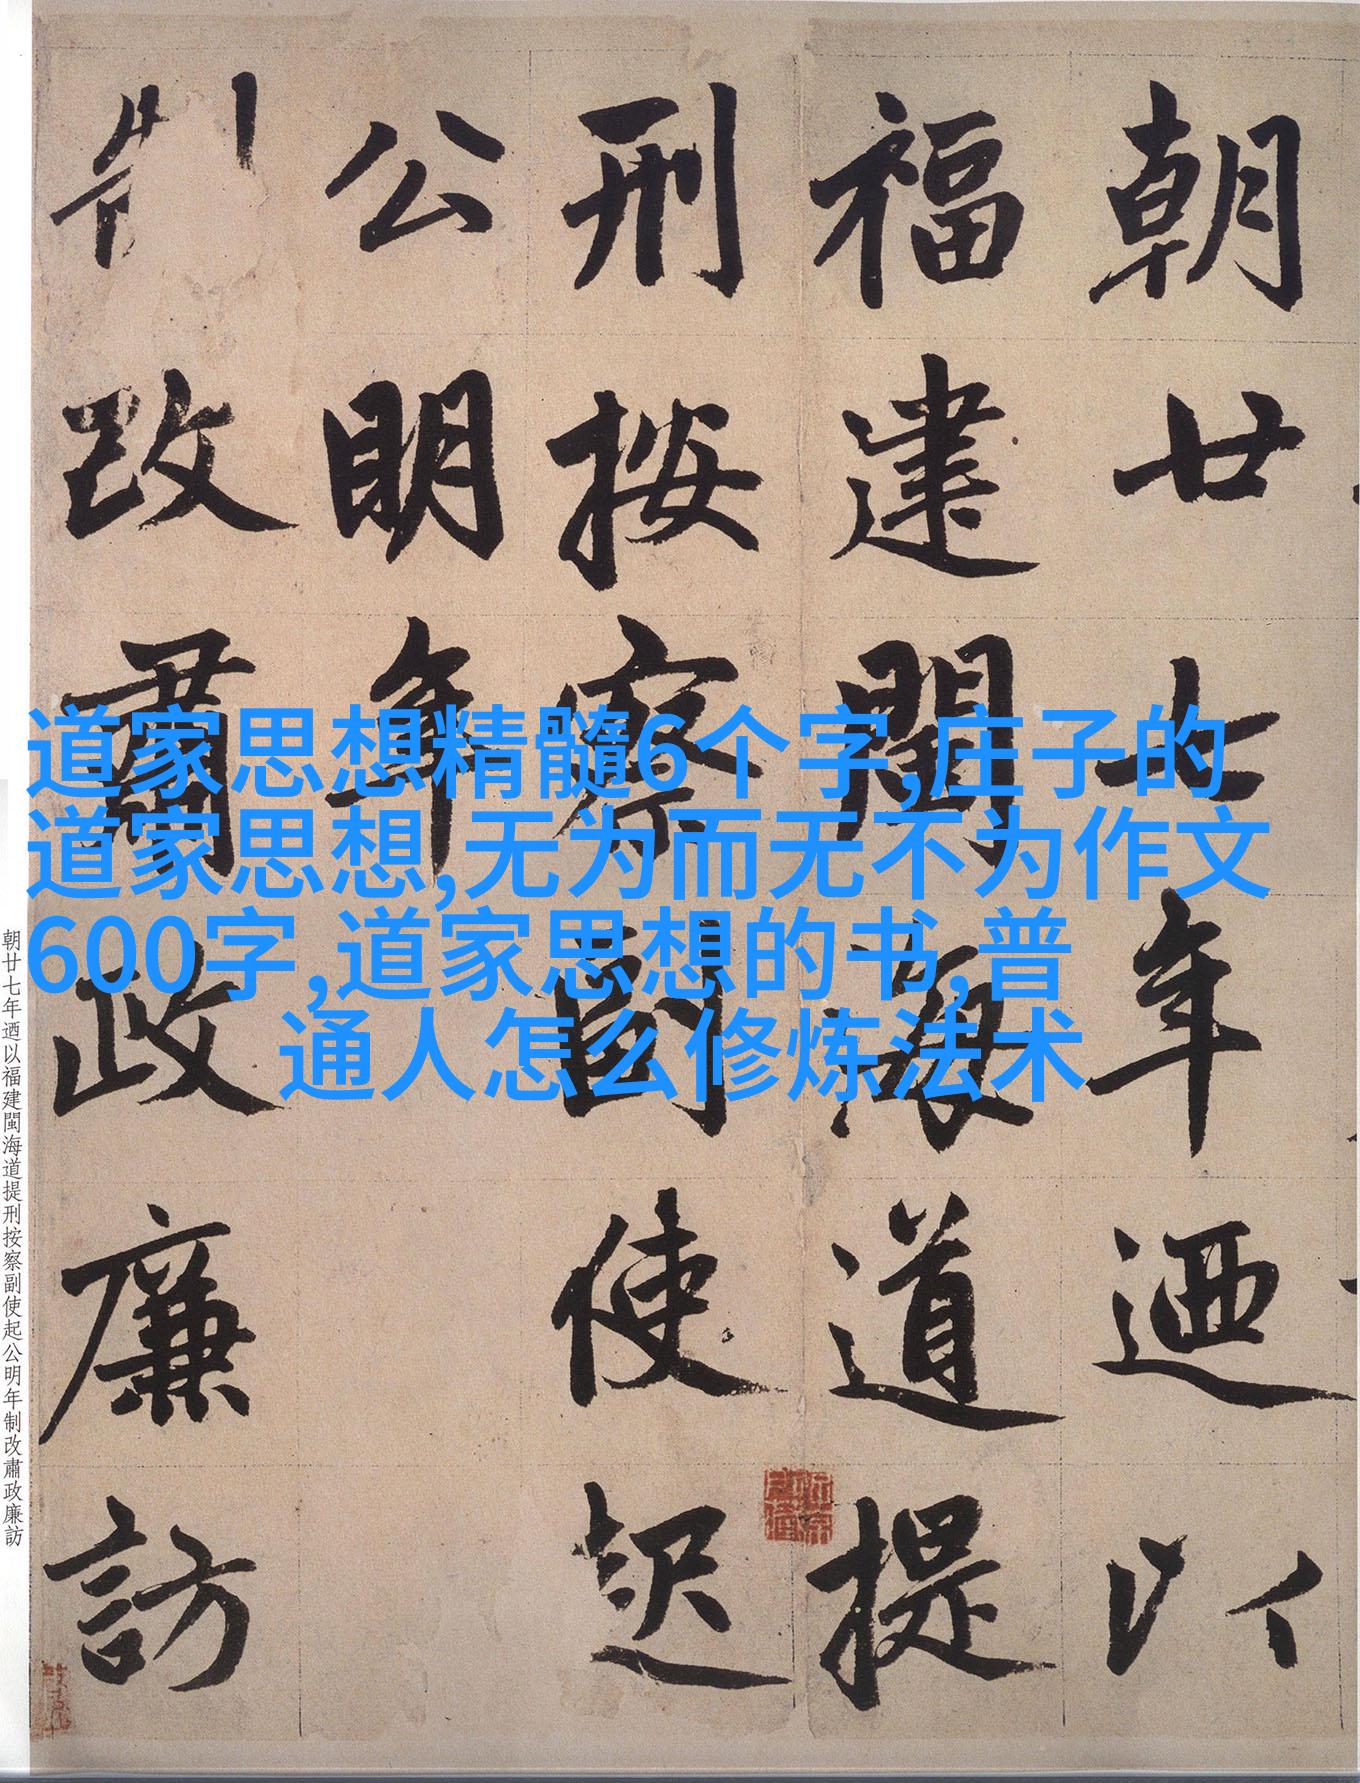 朝廿七年迺以
福建閩海道提
刑按察副使起
公明年
制改肅政廉訪
道家思想精髓6个字,庄子的
道家思想,无为而无不为作文
600字,道家思想的书,普
通人怎么修炼法术
朝廿七年迺以福建閩海道提刑按察副使起公明年制改肅政廉訪